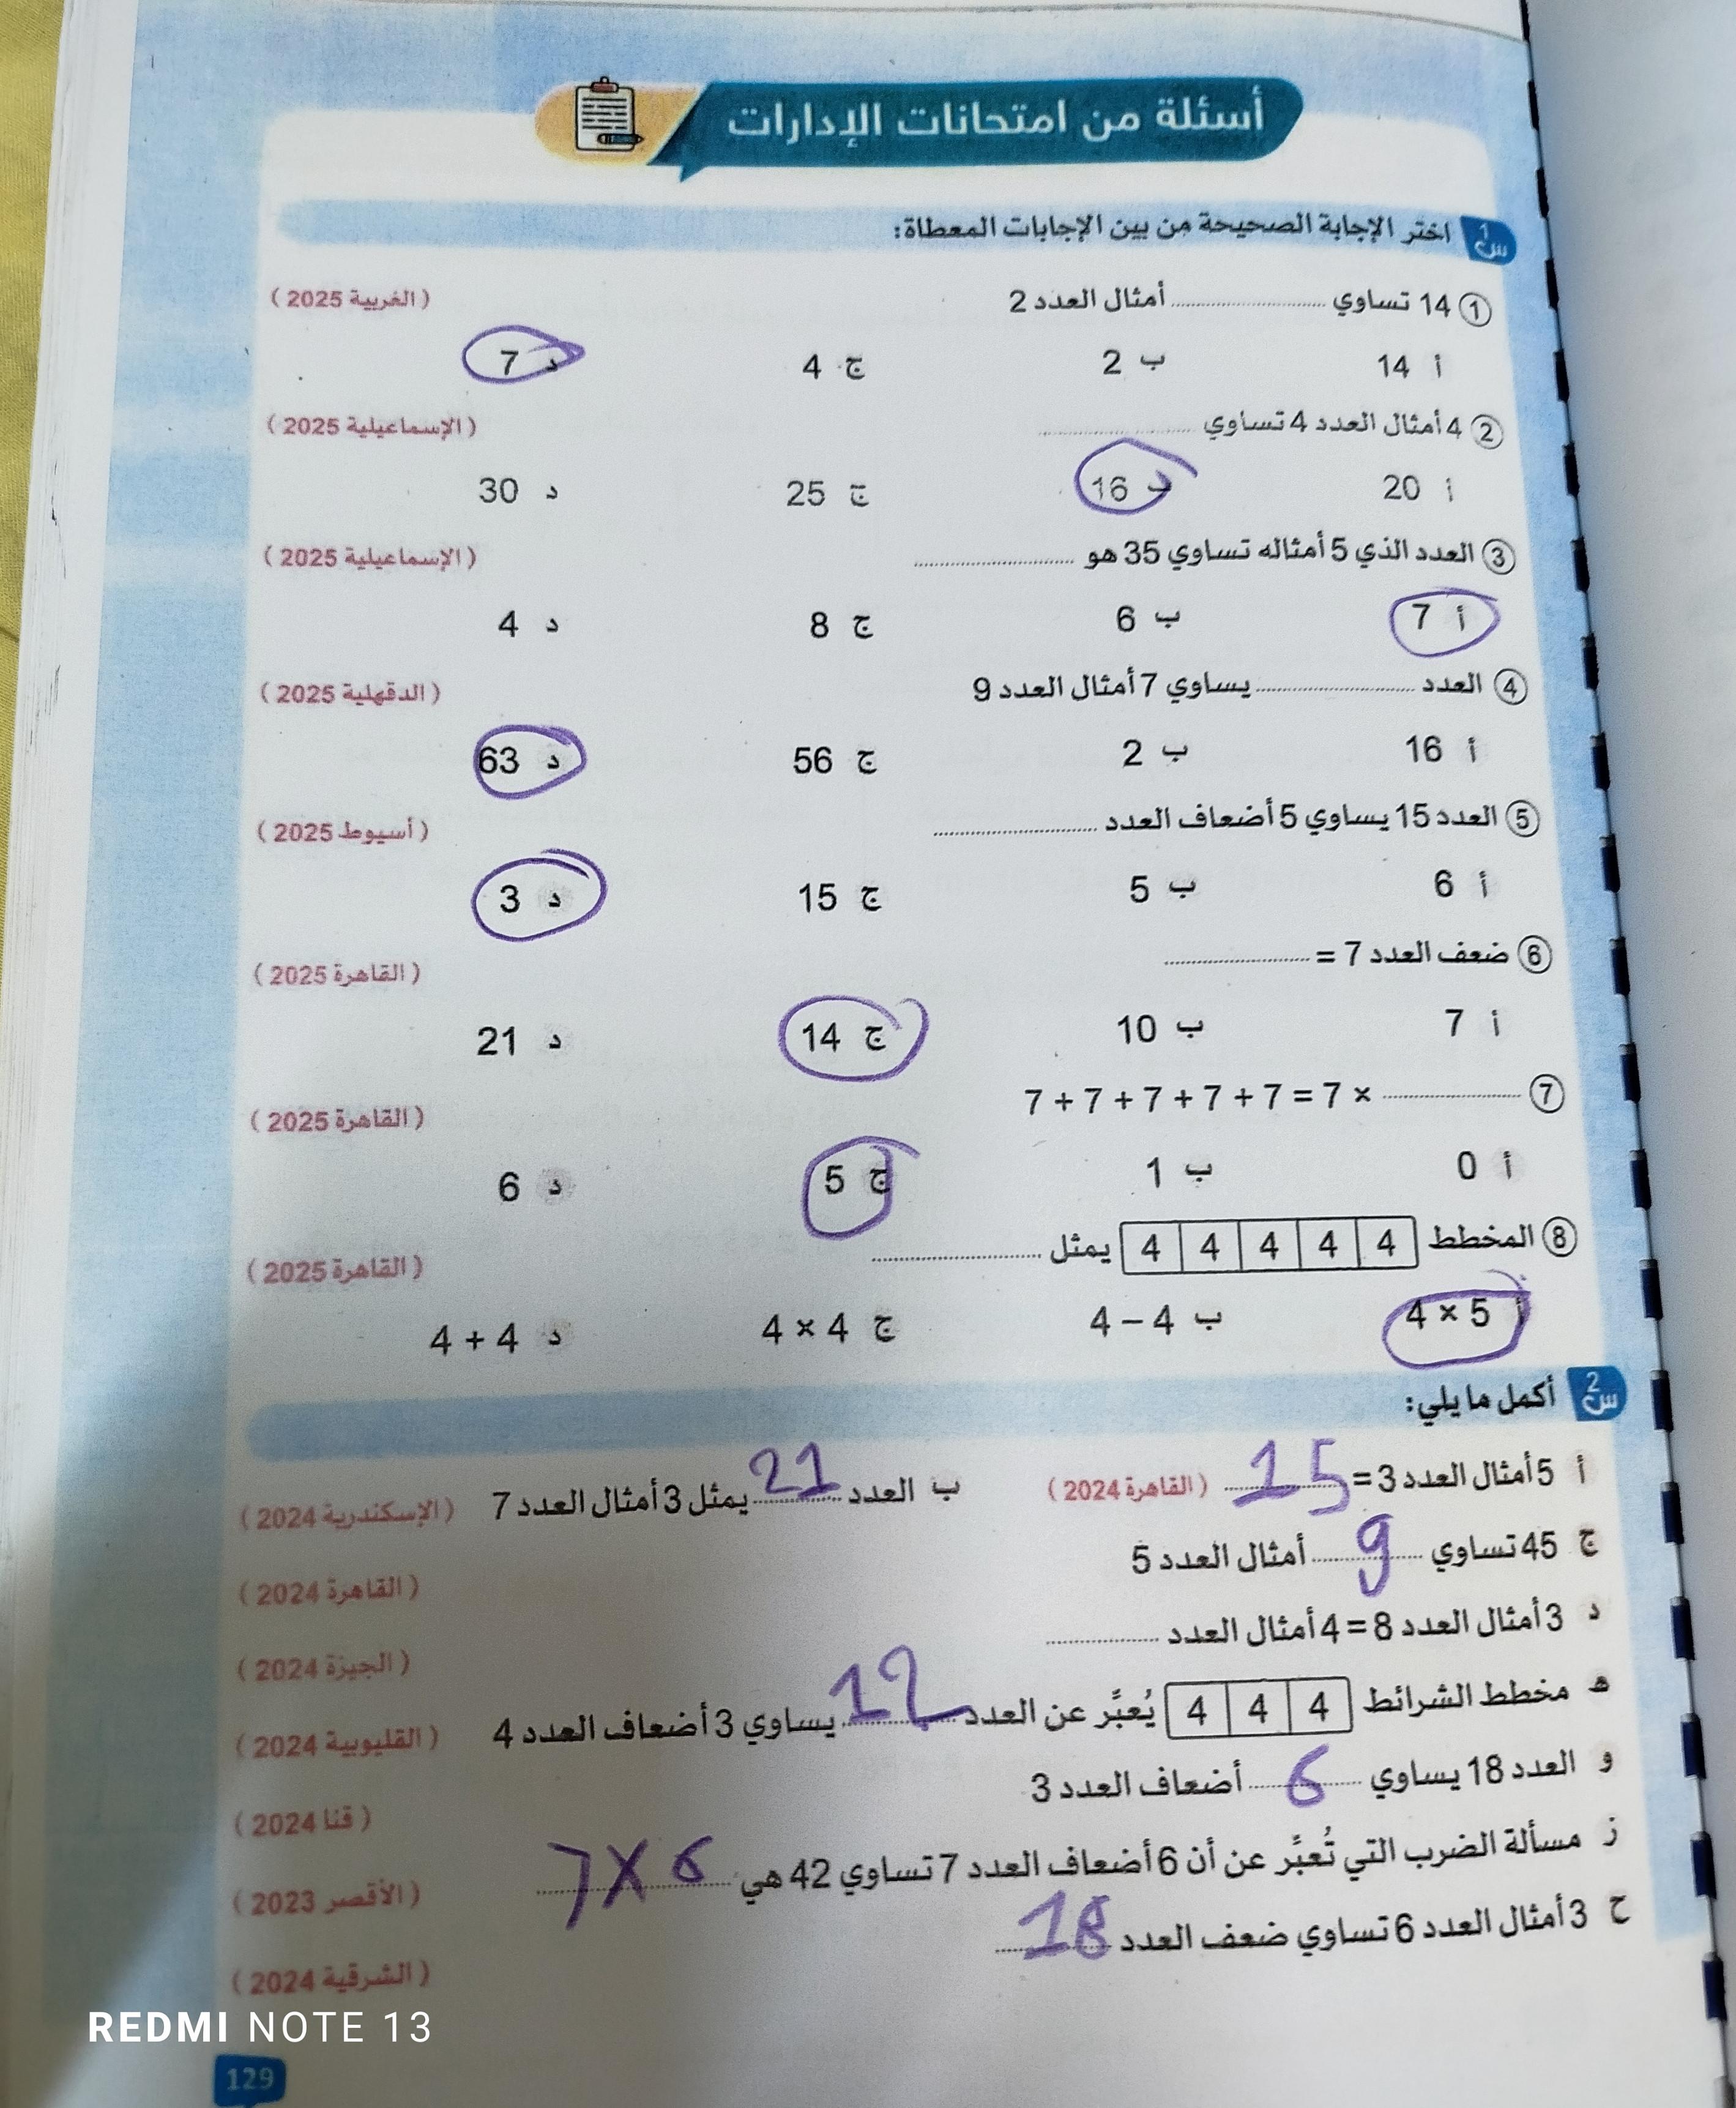 أسئلة من امتحانات الإدارات
س1 اختر الإجابة الصحيحة من بين الإجابات المعطاة:
① 14 تساوي .......... أمثال العدد 2 (الغربية 2025)
أ 14 ب 2 ج 4 د 7
② 4 أمثال العدد 4 تساوي .......... (الإسماعيلية 2025)
أ 20 ب 16 ج 25 د 30
③ العدد الذي 5 أمثاله تساوي 35 هو .......... (الإسماعيلية 2025)
أ 7 ب 6 ج 8 د 4
④ العدد .......... يساوي 7 أمثال العدد 9 (الدقهلية 2025)
أ 16 ب 2 ج 56 د 63
⑤ العدد 15 يساوي 5 أضعاف العدد .......... (أسيوط 2025)
أ 6 ب 5 ج 15 د 3
⑥ ضعف العدد 7 = .......... (القاهرة 2025)
أ 7 ب 10 ج 14 د 21
⑦ 7 + 7 + 7 + 7 + 7 = 7 × .......... (القاهرة 2025)
أ 0 ب 1 ج 5 د 6
⑧ المخطط 4 4 4 4 4 يمثل .......... (القاهرة 2025)
أ 4 × 5 ب 4 – 4 ج 4 × 4 د 4 + 4
س2 أكمل ما يلي:
أ 5 أمثال العدد 3 = 15 (القاهرة 2024) ب العدد 21 يمثل 3 أمثال العدد 7 (الإسكندرية 2024)
ج 45 تساوي 9 أمثال العدد 5 (القاهرة 2024)
د 3 أمثال العدد 8 = 4 أمثال العدد .......... (الجيزة 2024)
هـ مخطط الشرائط 4 4 4 يُعبِّر عن العدد 12 يساوي 3 أضعاف العدد 4 (القليوبية 2024)
و العدد 18 يساوي 6 أضعاف العدد 3 (قنا 2024)
ز مسألة الضرب التي تُعبِّر عن أن 6 أضعاف العدد 7 تساوي 42 هي 7 X 6 (الأقصر 2023)
ح 3 أمثال العدد 6 تساوي ضعف العدد 18 (الشرقية 2024)
REDMI NOTE 13
129